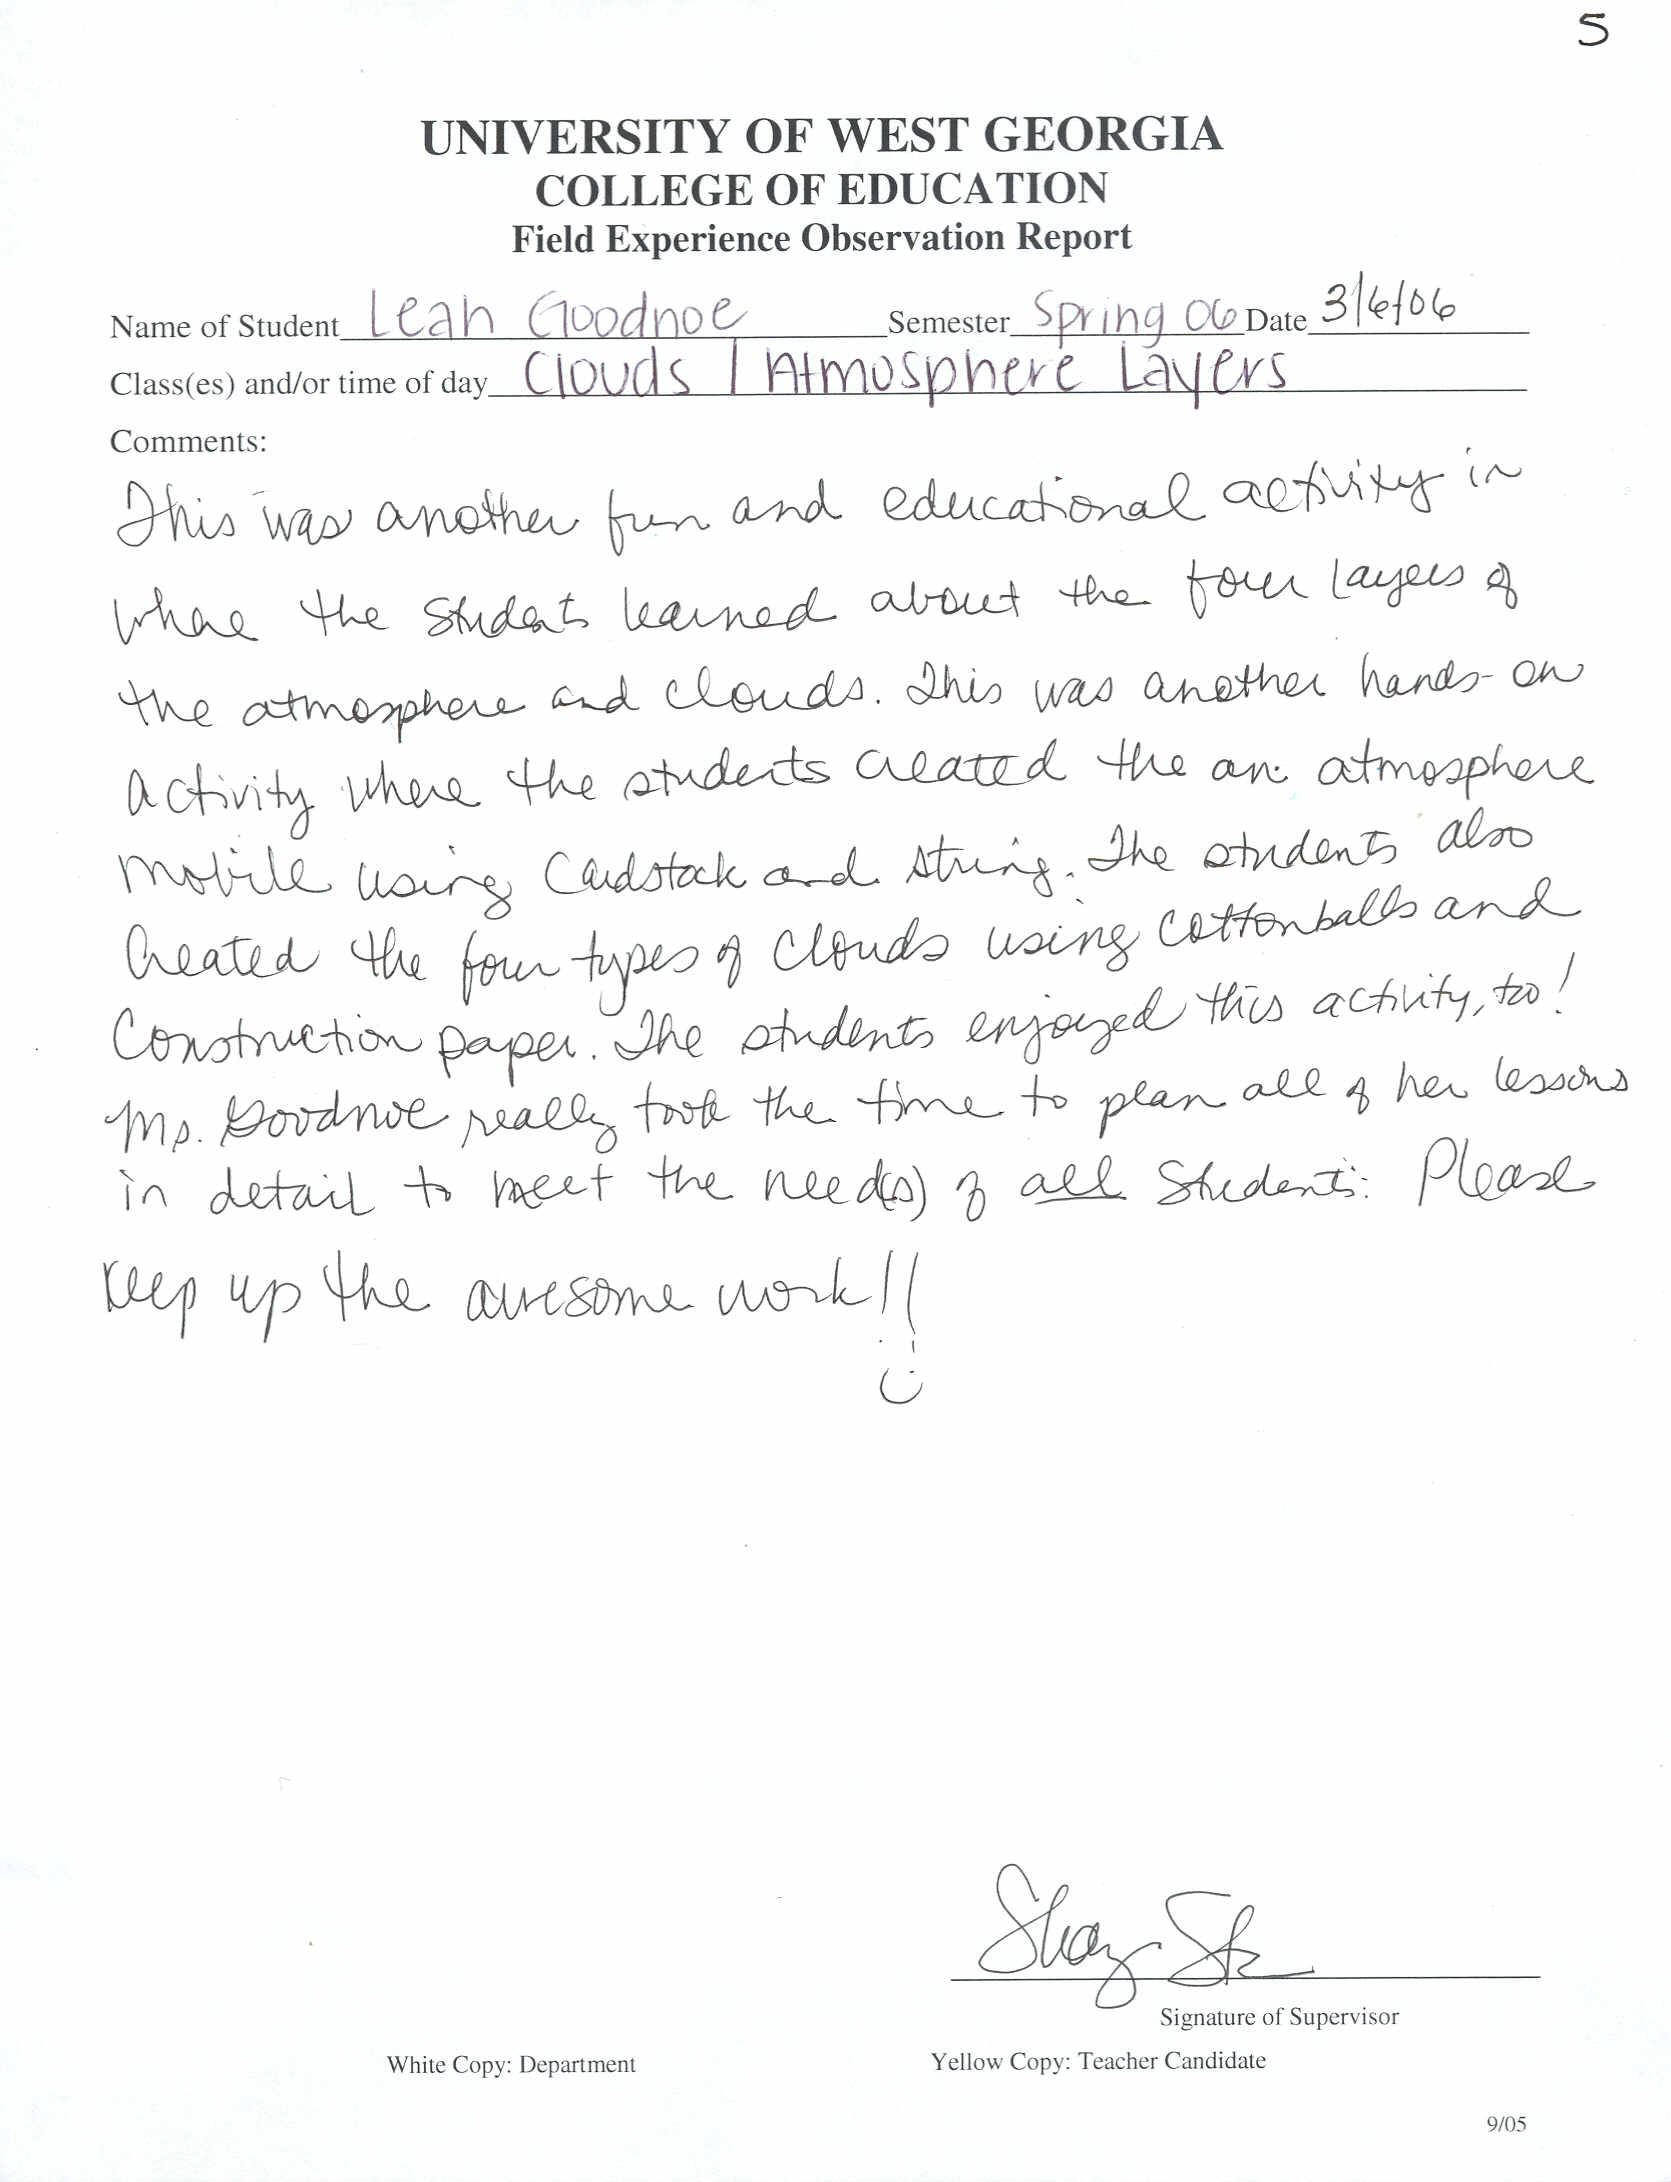 5
UNIVERSITY OF WEST GEORGIA
COLLEGE OF EDUCATION
Field Experience Observation Report
Name of Student Leah Goodnoe Semester Spring 06 Date 3/6/06
Class(es) and/or time of day Clouds / Atmosphere Layers
Comments:
This was another fun and educational activity in
where the students learned about the four layers of
the atmosphere and clouds. This was another hands-on
activity where the students created the an atmosphere
mobile using cardstock and string. The students also
created the four types of clouds using cottonballs and
construction paper. The students enjoyed this activity, too!
Ms. Goodnoe really took the time to plan all of her lessons
in detail to meet the need(s) of all students. Please
keep up the awesome work!!
Signature of Supervisor
White Copy: Department Yellow Copy: Teacher Candidate
9/05